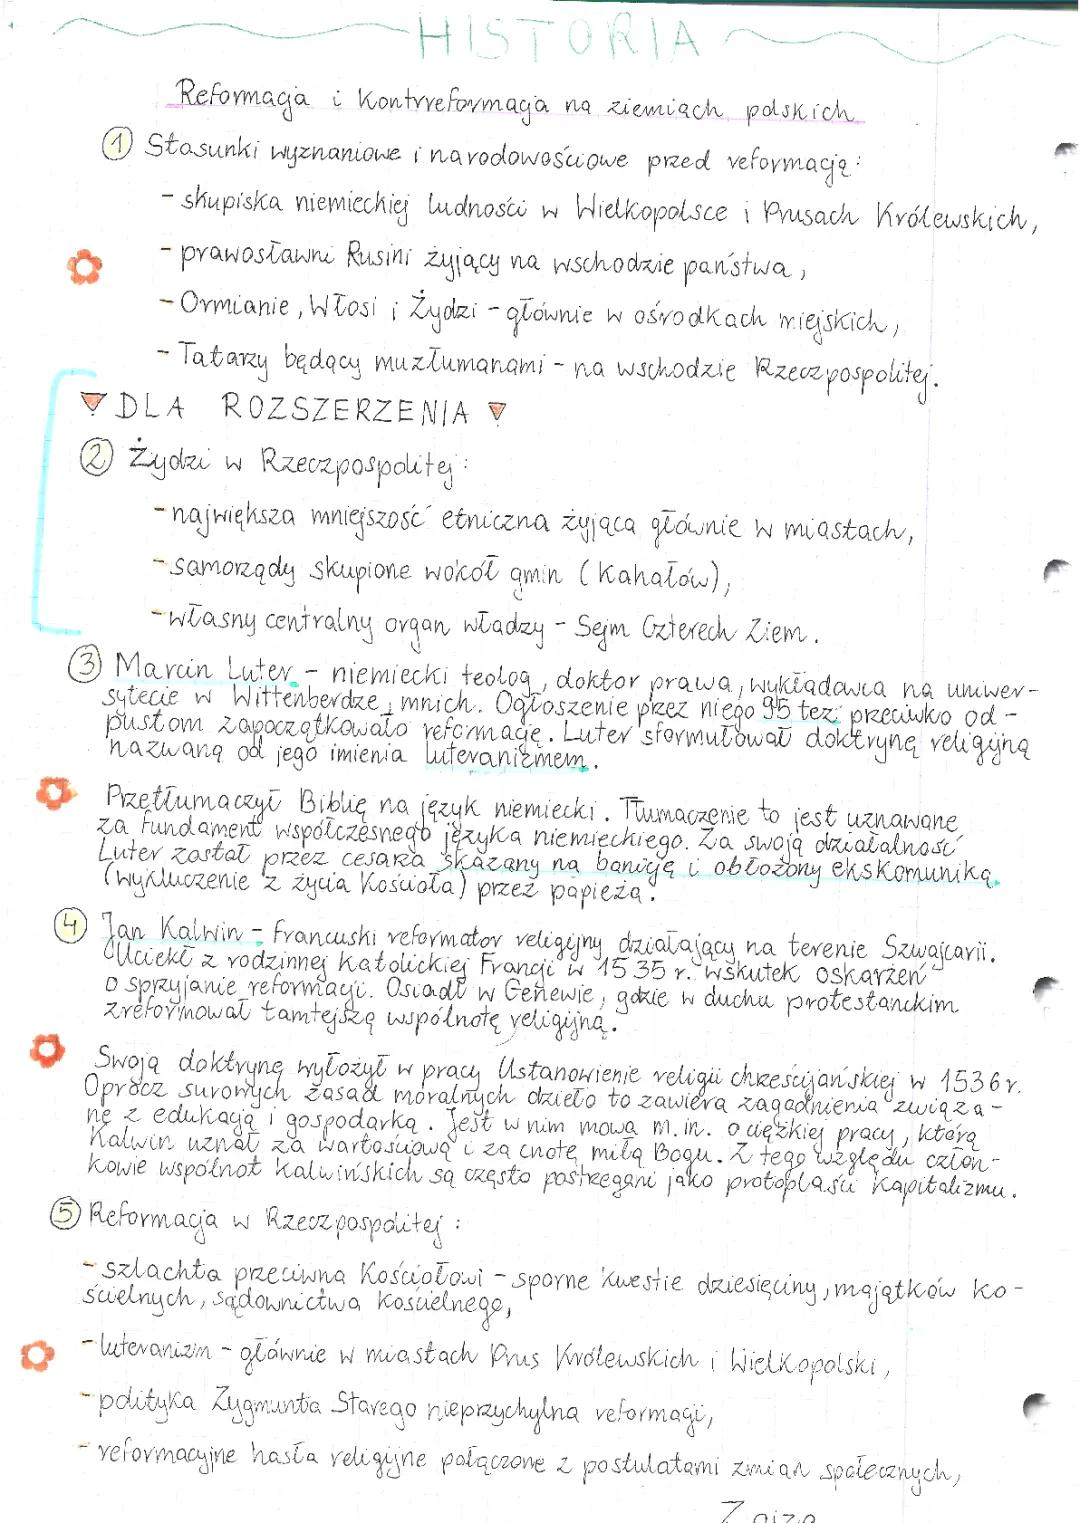 HISTORIA
Reformacja i kontrreformacja na ziemiach polskich
1 Stosunki wyznaniowe i narodowościowe przed reformacją:
- skupiska niemieckiej ludności w Wielkopolsce i Prusach Królewskich,
- prawosławni Rusini żyjący na wschodzie państwa,
- Ormianie, Włosi i Żydzi - głównie w ośrodkach miejskich,
- Tatarzy będący muzłumanami - na wschodzie Rzeczpospolitej.
DLA ROZSZERZENIA
2 Żydzi w Rzeczpospolitej:
- największa mniejszość etniczna żyjąca głównie w miastach,
- samorządy skupione wokół gmin (kahałów),
- własny centralny organ władzy - Sejm Czterech Ziem.
3 Marcin Luter - niemiecki teolog, doktor prawa, wykładowca na uniwer-
sytecie w Wittenberdze, mnich. Ogłoszenie przez niego 95 tez przeciwko od-
pustom zapoczątkowało reformację. Luter sformułował doktrynę religijną
nazwaną od jego imienia luteranizmem.
Przetłumaczył Biblię na język niemiecki. Tłumaczenie to jest uznawane
za fundament współczesnego języka niemieckiego. Za swoją działalność
Luter został przez cesarza skazany na banicję i obłożony ekskomuniką
(wykluczenie z życia Kościoła) przez papieża.
4 Jan Kalwin - francuski reformator religijny działający na terenie Szwajcarii.
Uciekł z rodzinnej katolickiej Francji w 1535 r. wskutek oskarżeń
o sprzyjanie reformacji. Osiadł w Genewie, gdzie w duchu protestanckim
zreformował tamtejszą wspólnotę religijną.
Swoją doktrynę wyłożył w pracy Ustanowienie religii chrześcijańskiej w 1536 r.
Oprócz surowych zasad moralnych dzieło to zawiera zagadnienia związa-
ne z edukacją i gospodarką. Jest w nim mowa m.in. o ciężkiej pracy, którą
Kalwin uznał za wartościową i za cnotę miłą Bogu. Z tego względu człon-
kowie wspólnot kalwińskich są często postrzegani jako protoplaści kapitalizmu.
5 Reformacja w Rzeczpospolitej:
- szlachta przeciwna Kościołowi - sporne kwestie dziesięciny, majątków ko-
ścielnych, sądownictwa kościelnego,
- luteranizm - głównie w miastach Prus Królewskich i Wielkopolski,
- polityka Zygmunta Starego nieprzychylna reformacji,
- reformacyjne hasła religijne połączone z postulatami zmian społecznych,